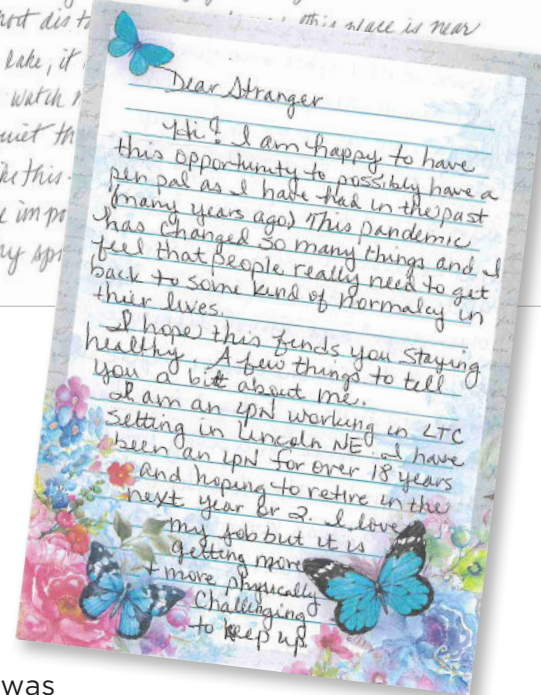 this place is near
Lake, it
watch
this
Dear Stranger
Hi! I am happy to have
this opportunity to possibly have a
pen pal as I have had in the past
(many years ago) This pandemic
has changed so many things and I
feel that people really need to get
back to some kind of normalcy in
their lives.
I hope this finds you staying
healthy. A few things to tell
you a bit about me.
I am an LPN working in LTC
setting in Lincoln NE. I have
been an LPN for over 18 years
and hoping to retire in the
next year or 2. I love
my job but it is
getting more
+ more physically
Challenging
to keep up.
was